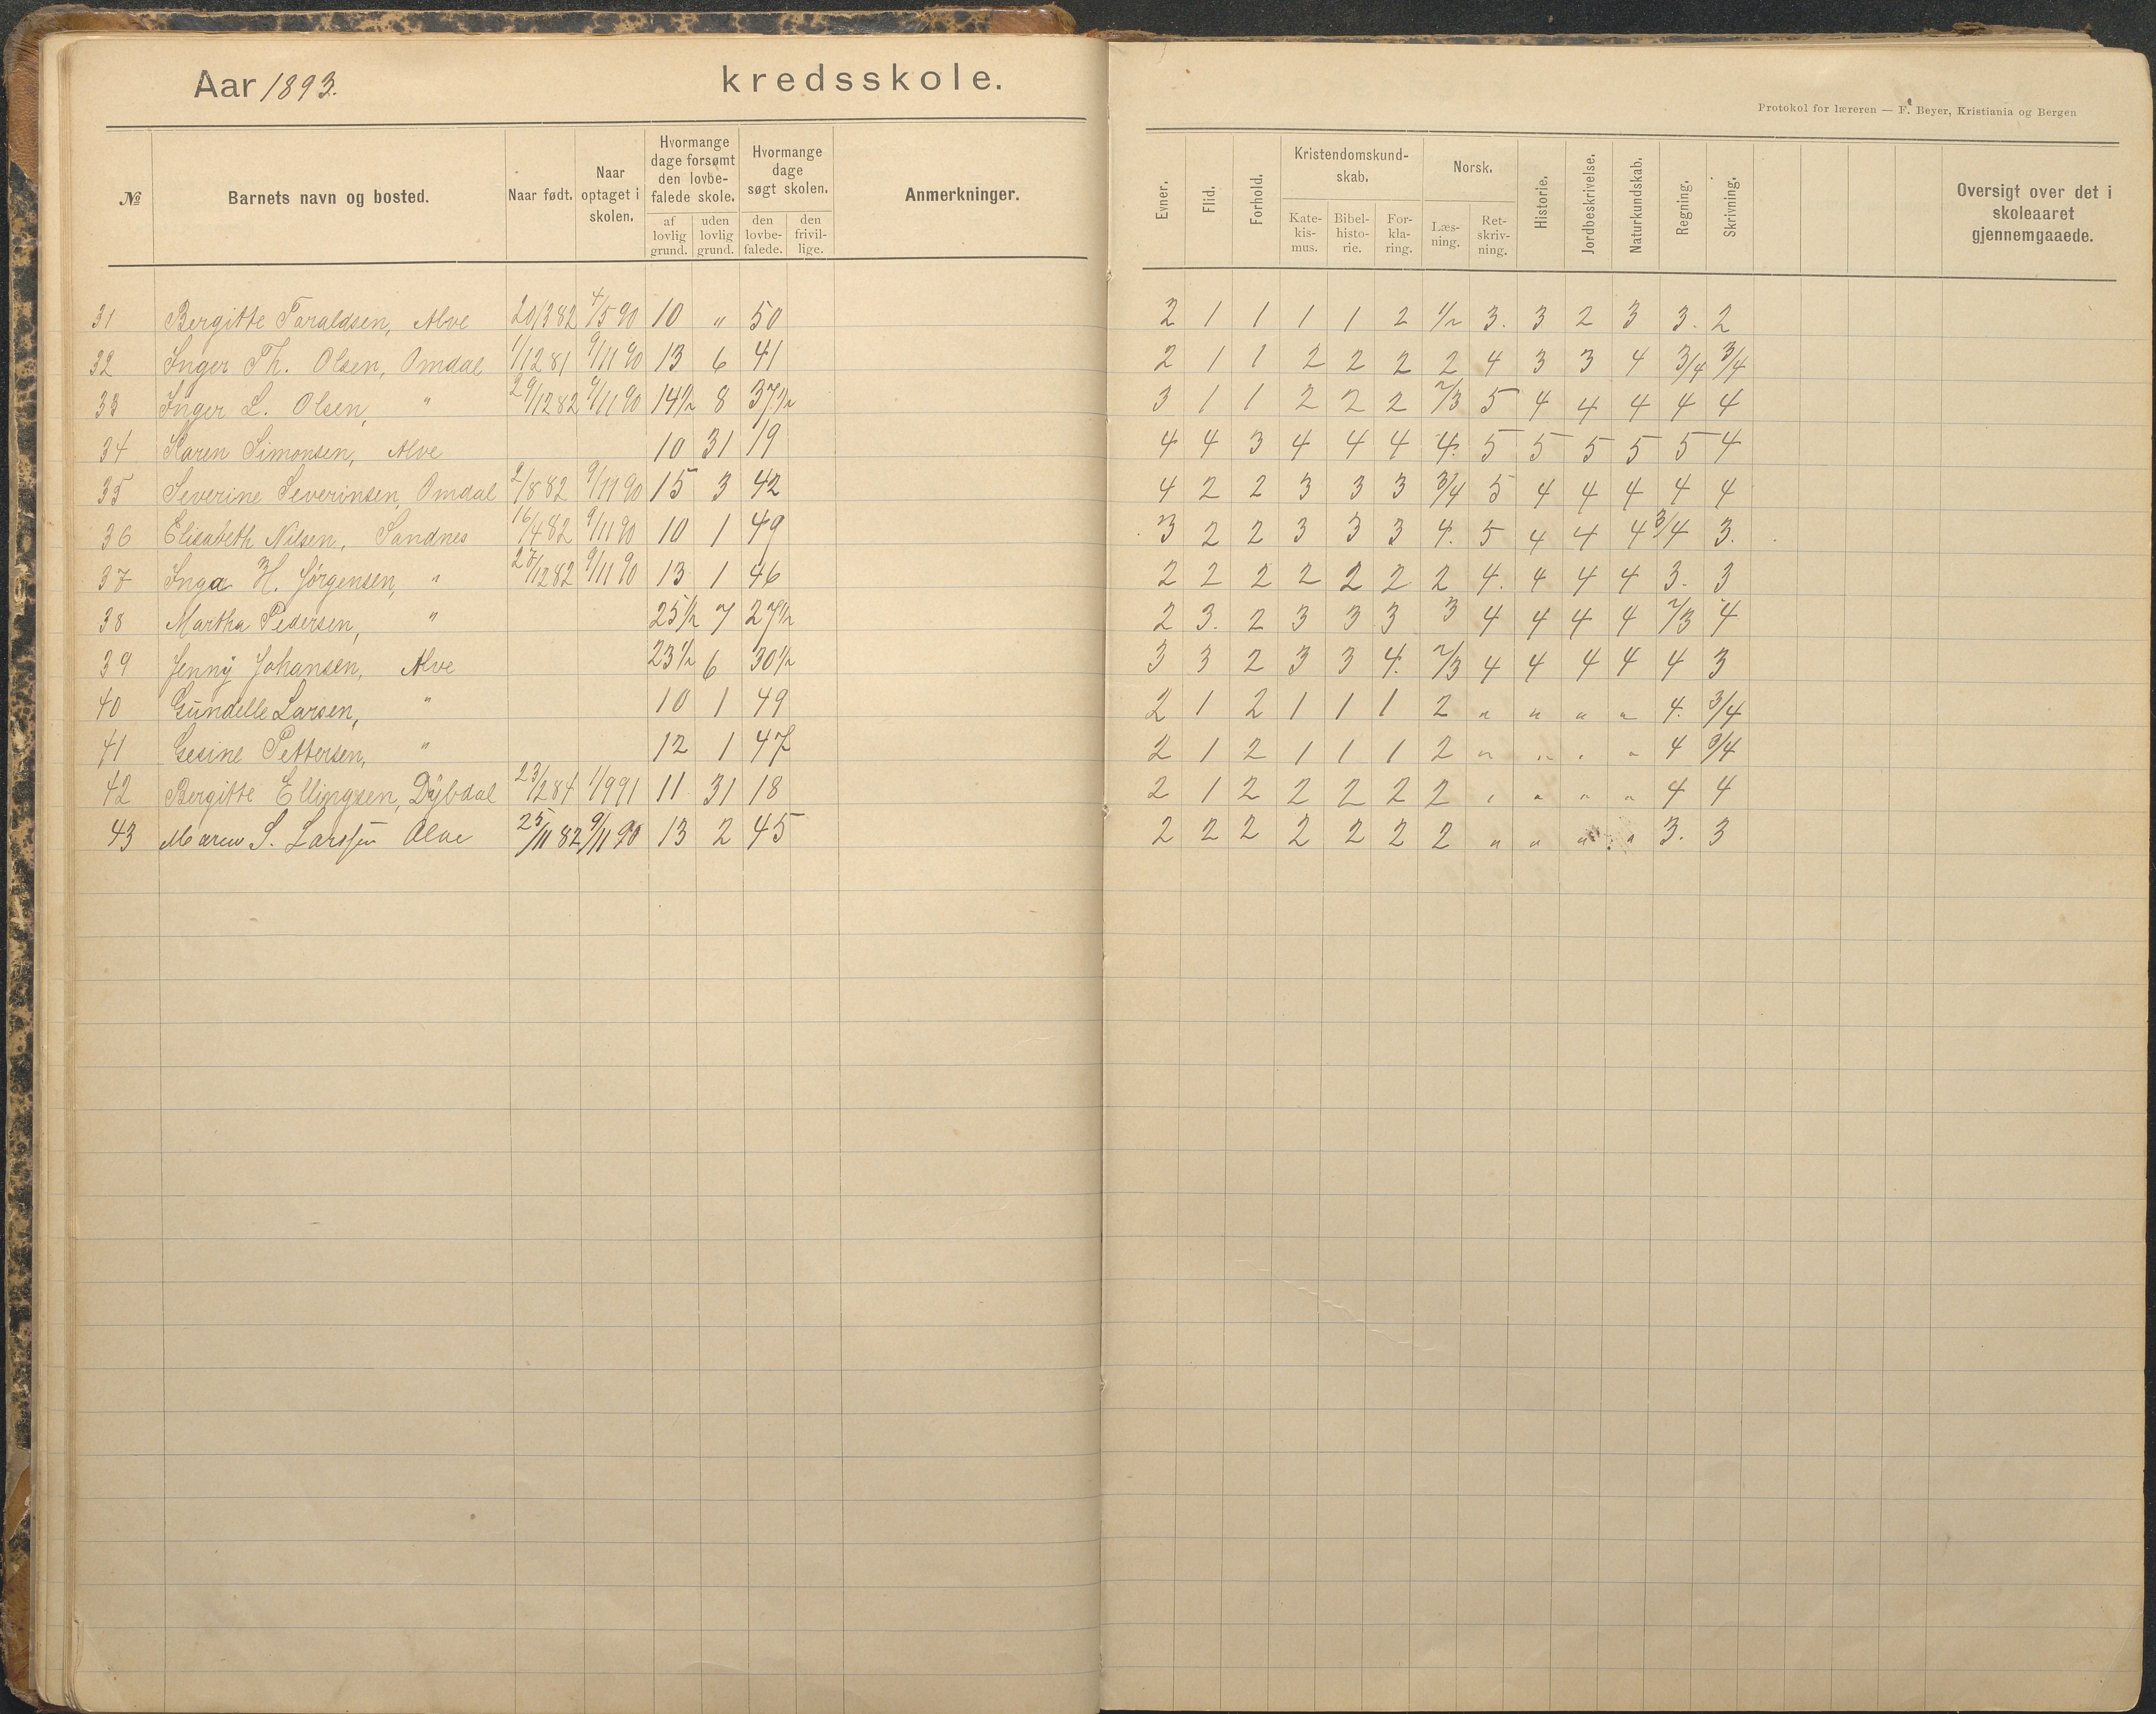 Aar 1893. kredsskole.
Protokol for læreren — F. Beyer, Kristiania og Bergen
№ Barnets navn og bosted. Naar født. Naar optaget i skolen. Hvormange dage forsømt den lovbefalede skole. af lovlig grund. uden lovlig grund. Hvormange dage søgt skolen. den lovbefalede. den frivillige. Anmerkninger. Evner. Flid. Forhold. Kristendomskundskab. Katekismus. Bibelhistorie. Forklaring. Norsk. Læsning. Retskrivning. Historie. Jordbeskrivelse. Naturkundskab. Regning. Skrivning. Oversigt over det i skoleaaret gjennemgaaede.
31 Bergitte Taraldsen, Alve 20/3 82 4/5 90 10 " 50 2 1 1 1 1 2 1/2 3. 3 2 3 3. 2
32 Inger Th. Olsen, Omdal 1/12 81 9/11 90 13 6 41 2 1 1 2 2 2 2 4 3 3 4 3/4 3/4
33 Inger L. Olsen, " 29/12 82 9/11 90 14 1/2 8 37 1/2 3 1 1 2 2 2 2/3 5 4 4 4 4 4
34 Karen Simonsen, Alve 10 31 19 4 4 3 4 4 4 4. 5 5 5 5 5 4
35 Severine Severinsen, Omdal 2/8 82 9/11 90 15 3 42 4 2 2 3 3 3 3/4 5 4 4 4 4 4
36 Elisabeth Nilsen, Sandnes 16/4 82 9/11 90 10 1 49 3 2 2 3 3 3 4. 5 4 4 4 3/4 3.
37 Inga H. Jørgensen, " 27/12 82 9/11 90 13 1 46 2 2 2 2 2 2 2 4. 4 4 4 3. 3
38 Martha Pedersen, " 25 1/2 7 27 1/2 2 3. 2 3 3 3 3 4 4 4 4 2/3 4
39 Jenny Johansen, Alve 23 1/2 6 30 1/2 3 3 2 3 3 4. 2/3 4 4 4 4 4 3
40 Gundelle Larsen, " 10 1 49 2 1 2 1 1 1 2 " " " " 4. 3/4
41 Gesine Pettersen, " 12 1 47 2 1 2 1 1 1 2 " " " " 4 3/4
42 Bergitte Ellingsen, Dybdal 23/2 84 1/9 91 11 31 18 2 1 2 2 2 2 2 " " " " 4 4
43 Maren S. Larssen Alve 25/11 82 9/11 90 13 2 45 2 2 2 2 2 2 2 " " " " 3. 3